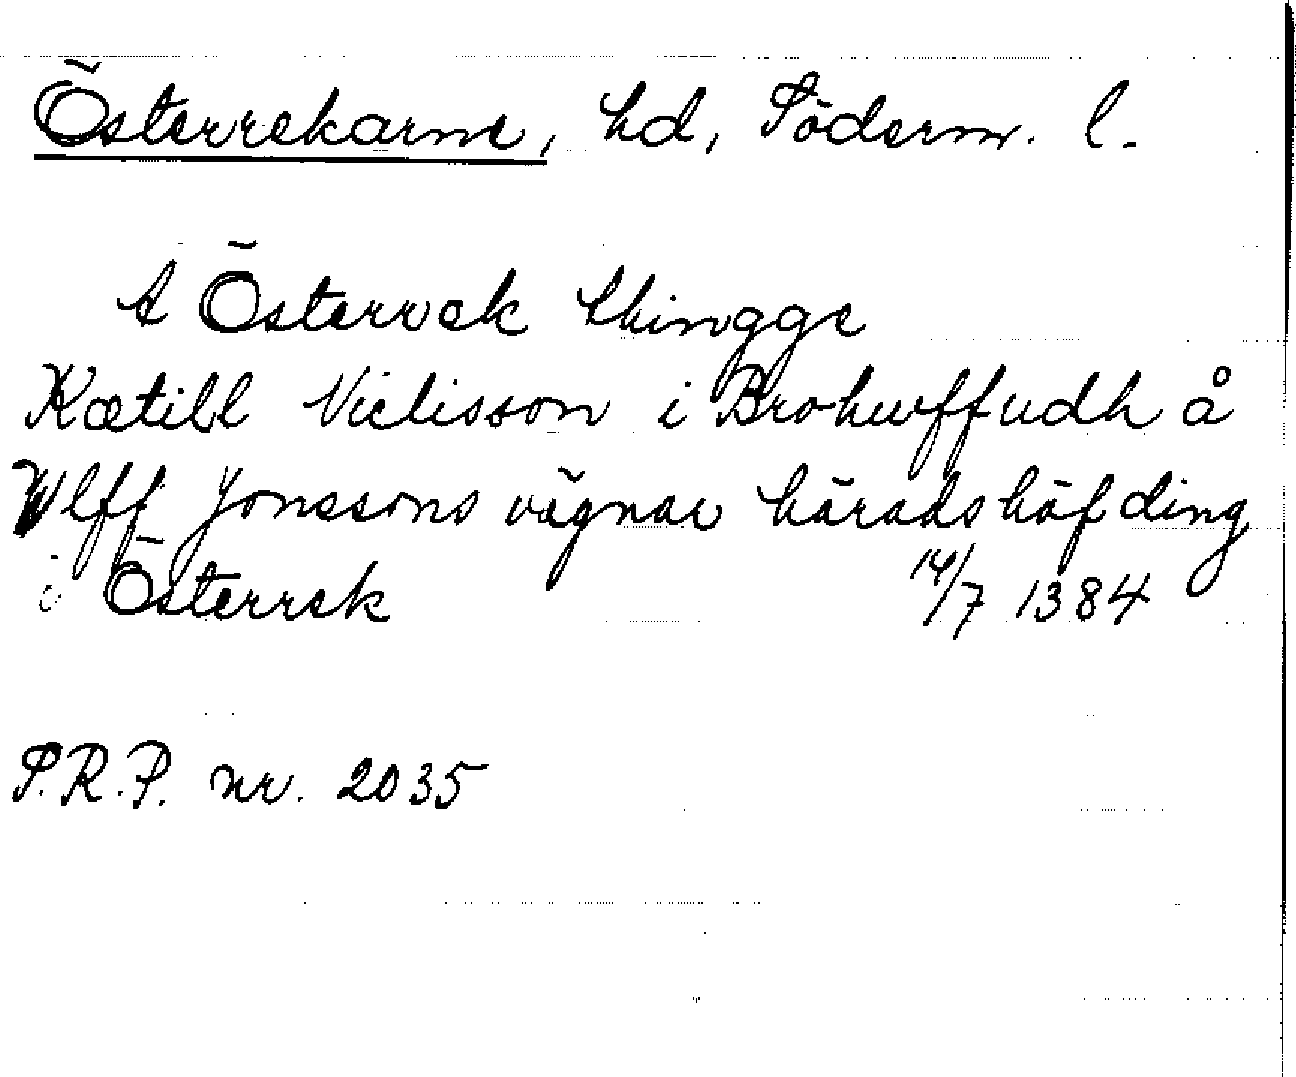 Österrekarne, hd, Söderm. l.
A Österrek thingge
Kætill Niclisson i Brohwffudh å
Wlff Jonssons vägnar häradshöfding
i Österrek 14/7 1384
S.R.P. nr. 2035